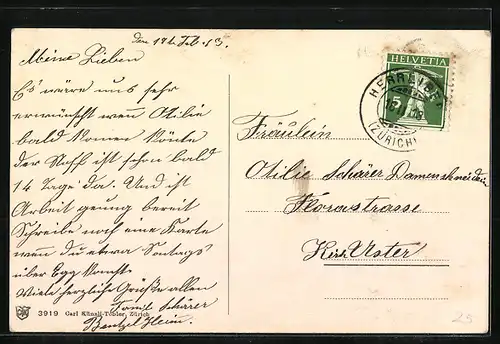 den 17t. Feb. 13.
Meine Lieben
Es wäre uns sehr
erwünscht wen Otilie
bald komen könte
der Stoff ist schon bald
14 Tage da. Und ist
Arbeit genug bereit
Schreibe noch eine Karte
wen du etwa Sontags
über Egg komst.
Viele herzliche Grüße allen
Famil Schärer
HELVETIA
5
(ZÜRICH)
Fräulein
Otilie Schärer Damenschneiderin
Florastrasse
Uster
3919 Carl Künzli-Tobler, Zürich
25